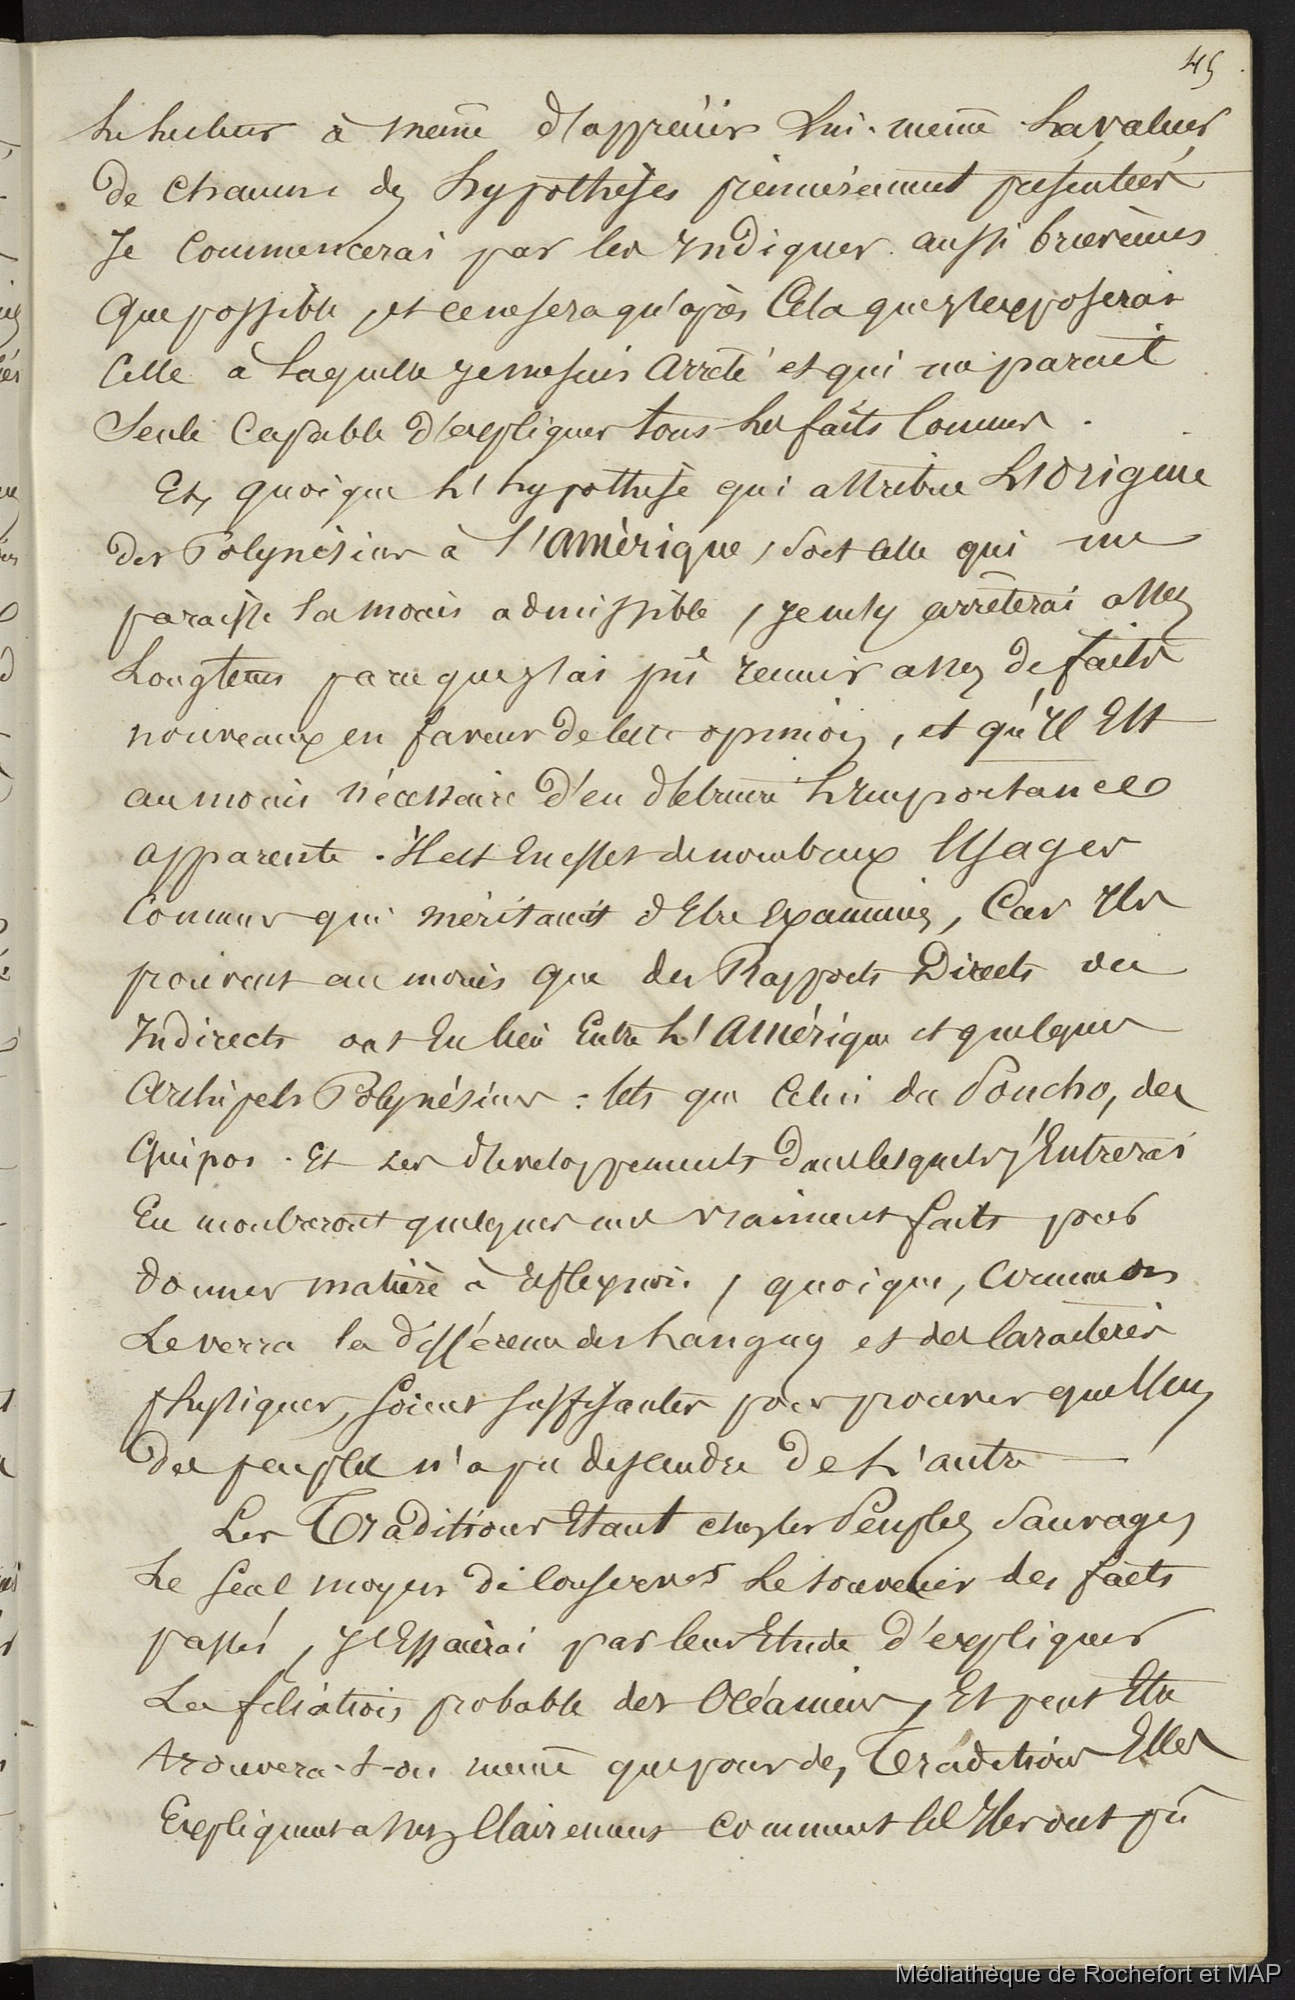 45
Le lecteur à même d'apprécier lui-même la valeur
de chacune des hypothèses premièrement présentées
Je commencerai par les Indiquer aussi brièvement
que possible, et ce ne sera qu'après Cela que j'exposerai
Celle à laquelle je me suis arrêté et qui me parait
Seule Capable d'expliquer tous les faits Connus.
Et, quoique l'hypothèse qui attribue L'Origine
des Polynésiens à l'Amérique, soit celle qui me
paraisse la moins admissible, je m'y arrêterai assez
Longtems parceque j'ai pû reunir assez de faits
nouveaux en faveur de cette opinion, et qu'Il Est
au moins nécessaire d'en détruire L'Importance
apparente. Il est En effet de nombreux Usages
Connus qui méritaient d'Etre Examinés, Car Ils
prouvent au moins que des Rapports Directs ou
Indirects ont Eu lieu Entre L'Amérique et quelques
Archipels Polynésiens: tels que Celui du Poncho, des
Quipos. Et les développements dans lesquels j'Entrerai
En montreront quelques uns vraiment faits pour
donner matière à réflexion, quoique, Comme on
Le verra la différence des Langues et des Caractères
physiques, soient suffisantes pour prouver que l'Un
des peuples n'a pu descendre de L'autre
Les Traditions Etant chez les Peuples Sauvages
Le Seul moyen de Conserver Le souvenir des faits
passés, J'Essaierai par leur Etude d'expliquer
La filiation probable des Océaniens, Et peut Etre
trouvera-t-on même que pour des Traditions Elles
Expliquent assez Clairement Comment les Iles ont pû
Médiathèque de Rochefort et MAP